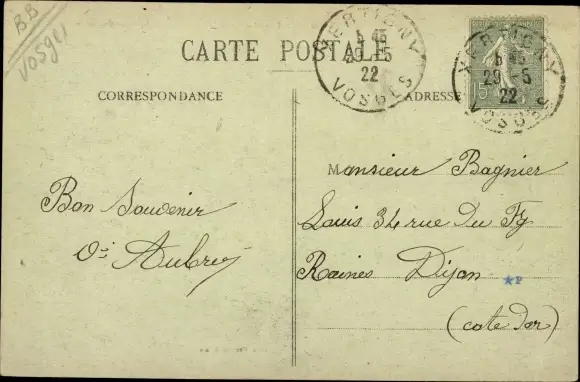 BB
Vosges
CARTE POSTALE
XERTIGNY
5 45
29 - 5
22
VOSGES
XERTIGNY
5 45
29 - 5
22
VOSGES
15
CORRESPONDANCE
ADRESSE
Monsieur Bagnier
Louis 34 rue Du Fg
Raines Dijon
(cote d'or)
Bon Souvenir
Aubry
*P